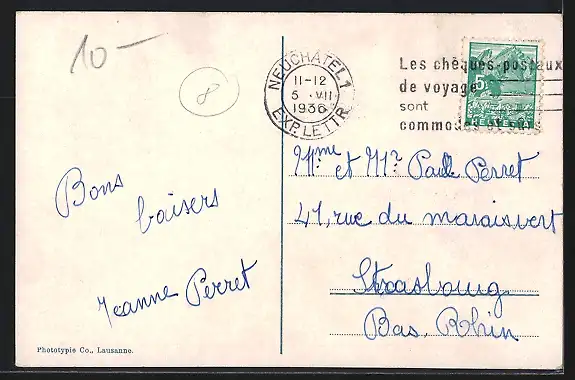 10 —
8
NEUCHÂTEL 1
11-12
5. VII.
1936
EXP. LETTR.
Les chèques postaux
de voyage
sont
commodes et sûrs
5
HELVETIA
Bons
baisers
Jeanne Perret
Mme et Mr Paul Perret
41, rue du marais vert
Strasbourg
Bas. Rhin
Phototypie Co., Lausanne.